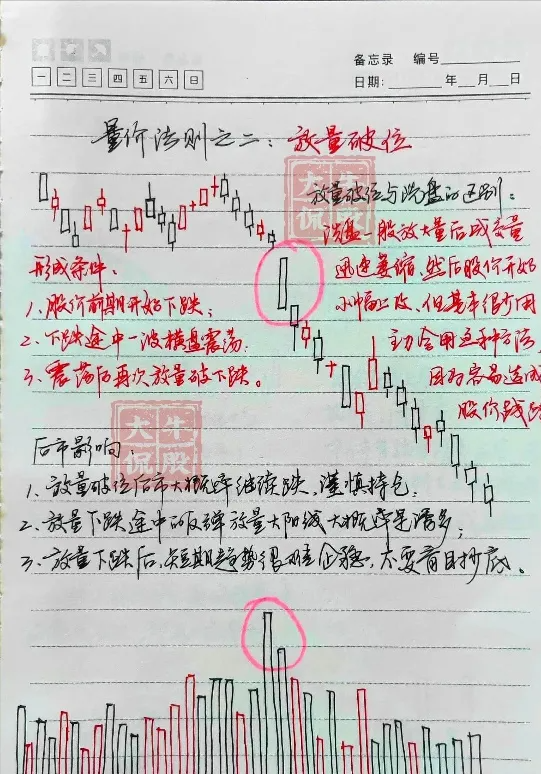 备忘录 编号
一 二 三 四 五 六 日
日期: 年 月 日
量价法则之二：放量破位
大牛
侃股
放量破位与洗盘的区别：
洗盘一般放大量后成交量
迅速萎缩，然后股价开始
小幅上攻、但基本很少用
主力会用这种方法，
因为容易造成
股价
形成条件：
1、股价前期开始下跌；
2、下跌途中一波横盘震荡；
3、震荡后再次放量破下跌。
大牛
侃股
后市影响：
1、放量破位后市大概率继续跌，谨慎持仓；
2、放量下跌途中的反弹放量大阳线大概率是诱多；
3、放量下跌后，短期趋势很难企稳，不要盲目抄底。